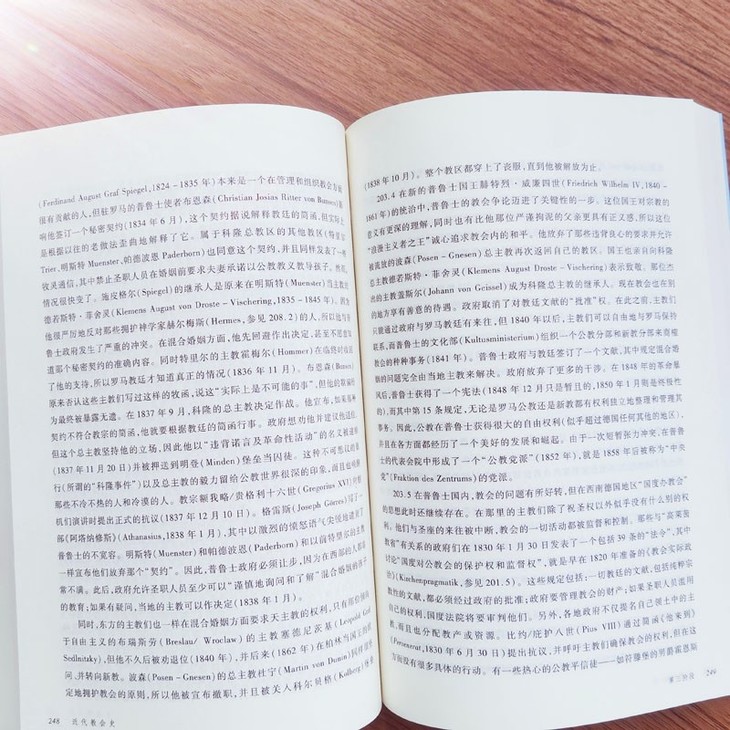 (Ferdinand August Graf Spiegel,1824－1835 年)本来是一个在管理和组织教会方面
很有贡献的人,但驻罗马的普鲁士使者布恩森(Christian Josias Ritter von Bunsen)影
响他签订一个秘密契约(1834 年 6 月),这个契约据说解释教廷的简函,但实际上
是根据以往的老做法歪曲地解释了它。属于科隆总教区的其他教区(特里尔
Trier,明斯特 Muenster、帕德波恩 Paderborn)也同意这个契约,并且同样发表了一种
牧灵通信,其中禁止圣职人员在婚姻前要求夫妻承诺以公教教义教导孩子。然而,
情况很快变了。施皮格尔(Spiegel)的继承人是原来在明斯特(Muenster)当主教的
德若斯特・菲舍灵(Klemens August von Droste－Vischering,1835－1845 年)。因为
他很严厉地反对那些拥护神学家赫尔梅斯(Hermes,参见 208.2)的人,所以他与普
鲁士政府发生了严重的冲突。在混合婚姻方面,他先回避作出决定,甚至不愿意知
道那个秘密契约的准确内容。同时特里尔的主教霍梅尔(Hommer)在临终时收回
了他的支持,所以罗马教廷才知道真正的情况(1836 年 11 月)。布恩森(Bunsen)
原来否认这些主教们写过这样的牧函,说这"实际上是不可能的事",但他的欺骗行
为最终被暴露无遗。在 1837 年 9 月,科隆的总主教决定作战。他宣布,如果那个
契约不符合教宗的简函,他就要根据教廷的简函行事。政府想劝他并建议他退位,
但这个总主教坚持他的立场,因此他以"违背诺言及革命性活动"的名义被逮捕
(1837 年 11 月 20 日)并被押送到明登(Minden)堡垒当囚徒。这种不可想的暴
行(所谓的"科隆事件")以及总主教的毅力留给公教世界很深的印象,而且也唤醒
那些不冷不热的人和冷漠的人。教宗额我略/贵格利十六世(Gregorius XVI)对枢
机们演讲时提出正式的抗议(1837 年 12 月 10 日)。格雷斯(Joseph Görres)写了一
部《阿塔纳修斯》(Athanasius,1838 年 1 月),其中以激烈的愤怒语气尖锐地谴责了
普鲁士的不宽容。明斯特(Muenster)和帕德波恩(Paderborn)和以前特里尔的主教
一样宣布他们放弃那个"契约"。因此,普鲁士政府必须让步,因为在西部的人都非
常不满。此后,政府允许圣职人员至少可以"谨慎地询问和了解"混合婚姻的孩子
的教育;如果有疑问,当地的主教可以作决定(1838 年 1 月)。
同时,东方的主教们也一样在混合婚姻方面要求天主教的权利,只有那位倾向
于自由主义的布瑞斯劳(Breslau/ Wroclaw)的主教塞德尼茨基(Leopold Graf
Sedlnitzky),但他不久后被劝退位(1840 年),并后来(1862 年)在柏林当国王的
问,并转向新教。波森(Posen－Gnesen)的总主教杜宁(Martin von Dunin)同样坚
定地拥护教会的原则,所以他被宣布撤职,并且被关入科尔贝格(Kolberg)堡垒
248 近代教会史
(1838 年 10 月)。整个教区都穿上了丧服,直到他被解放为止。
203.4 在新的普鲁士国王腓特烈・威廉四世(Friedrich Wilhelm IV,1840－
1861 年)的统治中,普鲁士的教会争论迈进了关键性的一步。这位国王对宗教的
意义有更深的理解,同时也有比他那位严谨拘泥的父亲更具有正义感,所以这位
"浪漫主义者之王"诚心追求教会内的和平。他放弃了那些违背良心的要求并允许
被流放的波森(Posen－Gnesen)总主教再次返回自己的教区。国王也亲自向科隆
总主教德若斯特・菲舍灵(Klemens August Droste－Vischering)表示致敬。那位杰
出的主教盖斯尔(Johann von Geissel)成为科隆总主教的继承人。现在教会也在别
的地方享有善意的待遇。政府取消了对教廷文献的"批准"权。在此之前,主教们
只能通过政府与罗马教廷有来往,但 1840 年以后,主教们可以自由地与罗马保持
联系,而普鲁士的文化部(Kultusministerium)组织一个公教分部和新教分部来商榷
教会的种种事务(1841 年)。普鲁士政府与教廷签订了一个文献,其中规定混合婚
姻的问题完全由当地主教来解决。政府放弃了更多的干涉。在 1848 年的革命暴
风后,普鲁士获得了一个宪法(1848 年 12 月只是暂且的,1850 年 1 月则是终极性
的),而其中第 15 条规定,无论是罗马公教还是新教都有权利独立地整理和管理其
事务。因此,公教在普鲁士获得很大的自由权利(似乎超过德国任何其他的地区),
并且在各方面都经历了一个美好的发展和崛起。由于一次短暂张力冲突,在普鲁
士的代表会院中形成了一个"公教党派"(1852 年),就是 1858 年后被称为"中央
党"(Fraktion des Zentrums)的党派。
203.5 在普鲁士国内,教会的问题有所好转,但在西南德国地区"国度办教会"
的思想此时还继续存在。在那里的主教们除了祝圣权以外似乎没有什么别的权
利。他们与圣座的来往被中断,教会的一切活动都被监督和控制。那些与"高莱茵
教省"有关系的政府们在 1830 年 1 月 30 日发表了一个包括 39 条的"法令",其中
讨论"国度对公教会的保护权和监督权",就是早在 1820 年准备的《教会实际政
治》(Kirchenpragmatik,参见 201.5)。这些规定包括:一切教廷的文献,包括纯粹宗
教性的文献,都必须经过政府的批准;政府要管理教会的财产;如果圣职人员滥用
自己的权利,国度法院将要审判他们。另外,各地政府不仅提名自己领土中的主
教,而且也分配教产或资源。比约/庇护八世(Pius VIII)通过简函《他来到》
(Pervenerat,1830 年 6 月 30 日)提出抗议,并呼吁主教们确保教会的权利,但在这
方面没有很多具体的行动。有一些热心的公教平信徒——如符滕堡的男爵霍恩斯
249